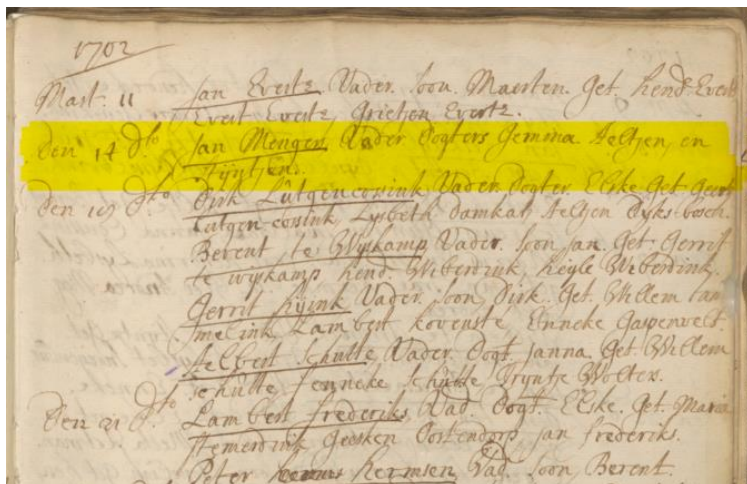 1702
Mart. 11 Jan Everts Vader. soon. Maerten. Get. Hend. Everts
Evert Everts, Grietjen Everts.
Den 14 dto Jan Mengen Vader Dogters Gemma Aeltjen, en
Tijntjen.
Den 19 dto Dirk Lutgencossink Vader. Dogter. Elske. Get. Geert
Lutgencossink Lysbeth damkat Aeltjen Dyks-bosch.
Berent te Wijskamp Vader. soon Jan. Get. Gerrit
te wijskamp Hend. Weberdink, Heyle Weberdink.
Gerrit Vader. soon, Dirk. Get. Willem
Lambert Enneke Gaspenvelt.
Aelbert Schutte, Vader. Dogt. Janna. Get. Willem
schutte Fenneke schutte Tryntje Wolters.
Den 21 dto Lambert frederiks, Vad. Dogt. Elske. Get. Maria
Stemerdink Geesken Oostendorp Jan frederiks.
Peter Hermsen Vad. soon, Berent.